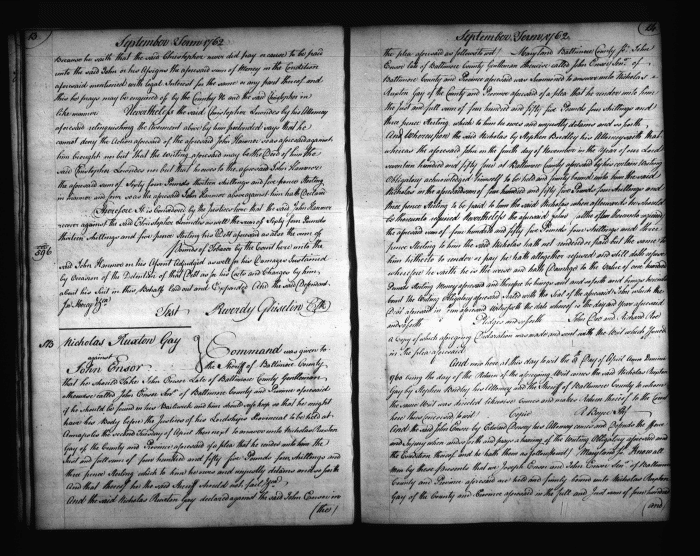 13
September Term 1762
Because he saith that the said Christopher never did pay or cause to be paid
unto the said John or his Assigns the aforesaid sum of Money in the Condition
aforesaid mentioned with legal Interest for the same or any part thereof and
this he prays may be enquired of by the Country &c and the said Christopher in
like manner Nevertheless the said Christopher Lowndes by his Attorney
aforesaid relinquishing the Averment above by him pretended says that he
cannot deny the Action aforesaid of the aforesaid John Hanmer as aforesaid against
him brought nor but that the writing aforesaid may be the Deed of him the
said Christopher Lowndes nor but that he owes to the aforesaid John Hanmer
the aforesaid sum of Sixty four Pounds thirteen shillings and five pence Sterling
in manner and form as the aforesaid John Hanmer above against him hath Declared
Therefore it is Considered by the Justices here that the said John Hanmer
recover against the said Christopher Lowndes as well the sum of Sixty four Pounds
thirteen shillings and five pence Sterling his Debt aforesaid as also the sum of
596
Pounds of Tobacco by the Court here unto the
said John Hanmer on his Assent Adjudged as well for his Damages Sustained
by Occasion of the Detention of that Debt as for his Costs and Charges by him
about his Suit in this Behalf laid out and Expended And the said Defendant
in Mercy &c
Test Reverdy Ghiselin Clk
Nicholas Ruxton Gay
against
John Ensor
Command was given to
the Sheriff of Baltimore County
that he should take John Ensor Late of Baltimore County Gentleman
otherwise called John Ensor Junr of Baltimore County and Province aforesaid
if he should be found in his Bailiwick and him should safe keep so that he might
have his Body before the Justices of his Lordships Provincial to be held at
Annapolis the second Tuesday of April then next to answer unto Nicholas Ruxton
Gay of the County and Province aforesaid of a plea that he render unto him the
Just and full sum of four hundred and fifty five Pounds four shillings and
three pence Sterling which to him he owes and unjustly detains and so forth
And that thereof he the said Sheriff should not fail &c
And the said Nicholas Ruxton Gay declared against the said John Ensor in
(the)
14
September Term 1762
the plea aforesaid as followeth to wit Maryland Baltimore County ss John
Ensor late of Baltimore County Gentleman otherwise called John Ensor Junr of
Baltimore County and Province aforesaid was Summoned to answer unto Nicholas
Ruxton Gay of the County and Province aforesaid of a plea that he render unto him
the just and full sum of four hundred and fifty five Pounds four shillings and
three pence Sterling which to him he owes and unjustly detains and so forth
And Whereupon the said Nicholas by Stephen Bradley his Attorney saith that
whereas the aforesaid John on the fourth day of November in the Year of our Lord
seventeen hundred and fifty at Baltimore County aforesaid by his certain Writing
Obligatory acknowledged himself to be held and firmly bound unto him the said
Nicholas in the aforesaid sum of four hundred and fifty five Pounds four shillings and
three pence Sterling to be paid to him the said Nicholas when afterwards he should
be thereunto required Nevertheless the aforesaid John altho often thereunto required
the aforesaid sum of four hundred and fifty five Pounds four shillings and three
pence Sterling to him the said Nicholas hath not rendered or paid but the same to
him hitherto to render or pay he hath altogether refused and still doth refuse
wherefore he saith he is the worse and hath Damage to the Value of one hundred
Pounds Sterling Money aforesaid and therefore he brings suit and so forth and brings here into
Court the Writing Obligatory aforesaid sealed with the Seal of the aforesaid John which the
Debt aforesaid in form aforesaid testifie the date whereof is the day and Year aforesaid
and so forth Pledges and so forth John Doe and Richard Roe
A Copy of which aforegoing Declaration was made and sent with the Writ which Issued
in the plea aforesaid
And now here at this day to wit the 8th Day of April Anno Domini
1760 being the day of the Return of the aforegoing Writ came the said Nicholas Ruxton
Gay by Stephen Bradley his Attorney and the Sheriff of Baltimore County to whom
the same Writ was directed likewise Comes and makes return thereof to the Court
here thus Endorsed to wit Cepi R Boyce Shff
And the said John Ensor by Edward Dorsey his Attorney comes and Defends the force
and Injury when and so forth and prays a hearing of the Writing Obligatory aforesaid and
the Condition thereof and to hath them as follows to wit Maryland ss Know all
Men by these Presents that we Joseph Ensor and John Ensor Junr of Baltimore
County and Province aforesaid are held and firmly bound unto Nicholas Ruxton
Gay of the County and Province aforesaid in the full and Just sum of four hundred
(and)